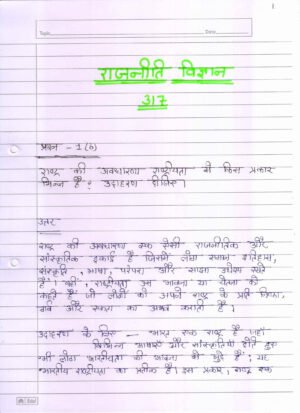 1
Topic
Date
राजनीति विज्ञान
317
प्रश्न - 1(b)
राष्ट्र की अवधारणा राष्ट्रीयता से किस प्रकार
भिन्न है? उदाहरण दीजिए।
उत्तर
राष्ट्र की अवधारणा एक ऐसी राजनीतिक और
सांस्कृतिक इकाई है जिसमें लोग समान इतिहास,
संस्कृति, भाषा, परंपरा और साझा उद्देश्य रखते
हैं। वहीं, राष्ट्रीयता उस भावना या चेतना को
कहते हैं जो लोगों को अपने राष्ट्र के प्रति निष्ठा,
गर्व और एकता का अनुभव कराती है।
उदाहरण के लिए - भारत एक राष्ट्र है जहाँ
विभिन्न भाषाएँ और संस्कृतियाँ होते हुए
भी लोग भारतीयता की भावना से जुड़े हैं; यह
भारतीय राष्ट्रीयता का प्रतीक है। इस प्रकार, राष्ट्र एक